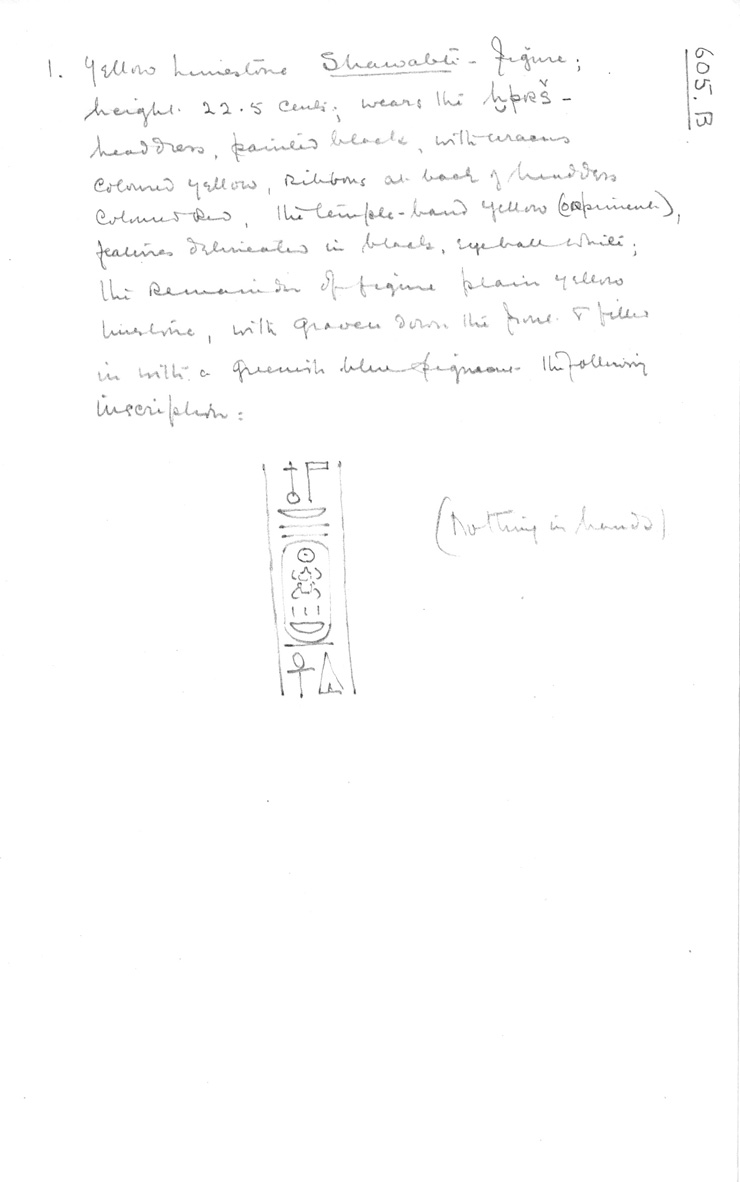 605.B
1. Yellow Limestone Shawabti-figure;
height. 22.5 cents; wears the ḫpRŠ-
headdress, painted black, with uraeus
coloured yellow, Ribbons at back of headdress
coloured Red, the temple-band yellow (orpiment),
features delineated in black, eyeball white;
the Remainder of figure plain yellow
limestone, with graven down the front & filled
in with a greenish blue pigment the following
inscription:
(Nothing in hands)